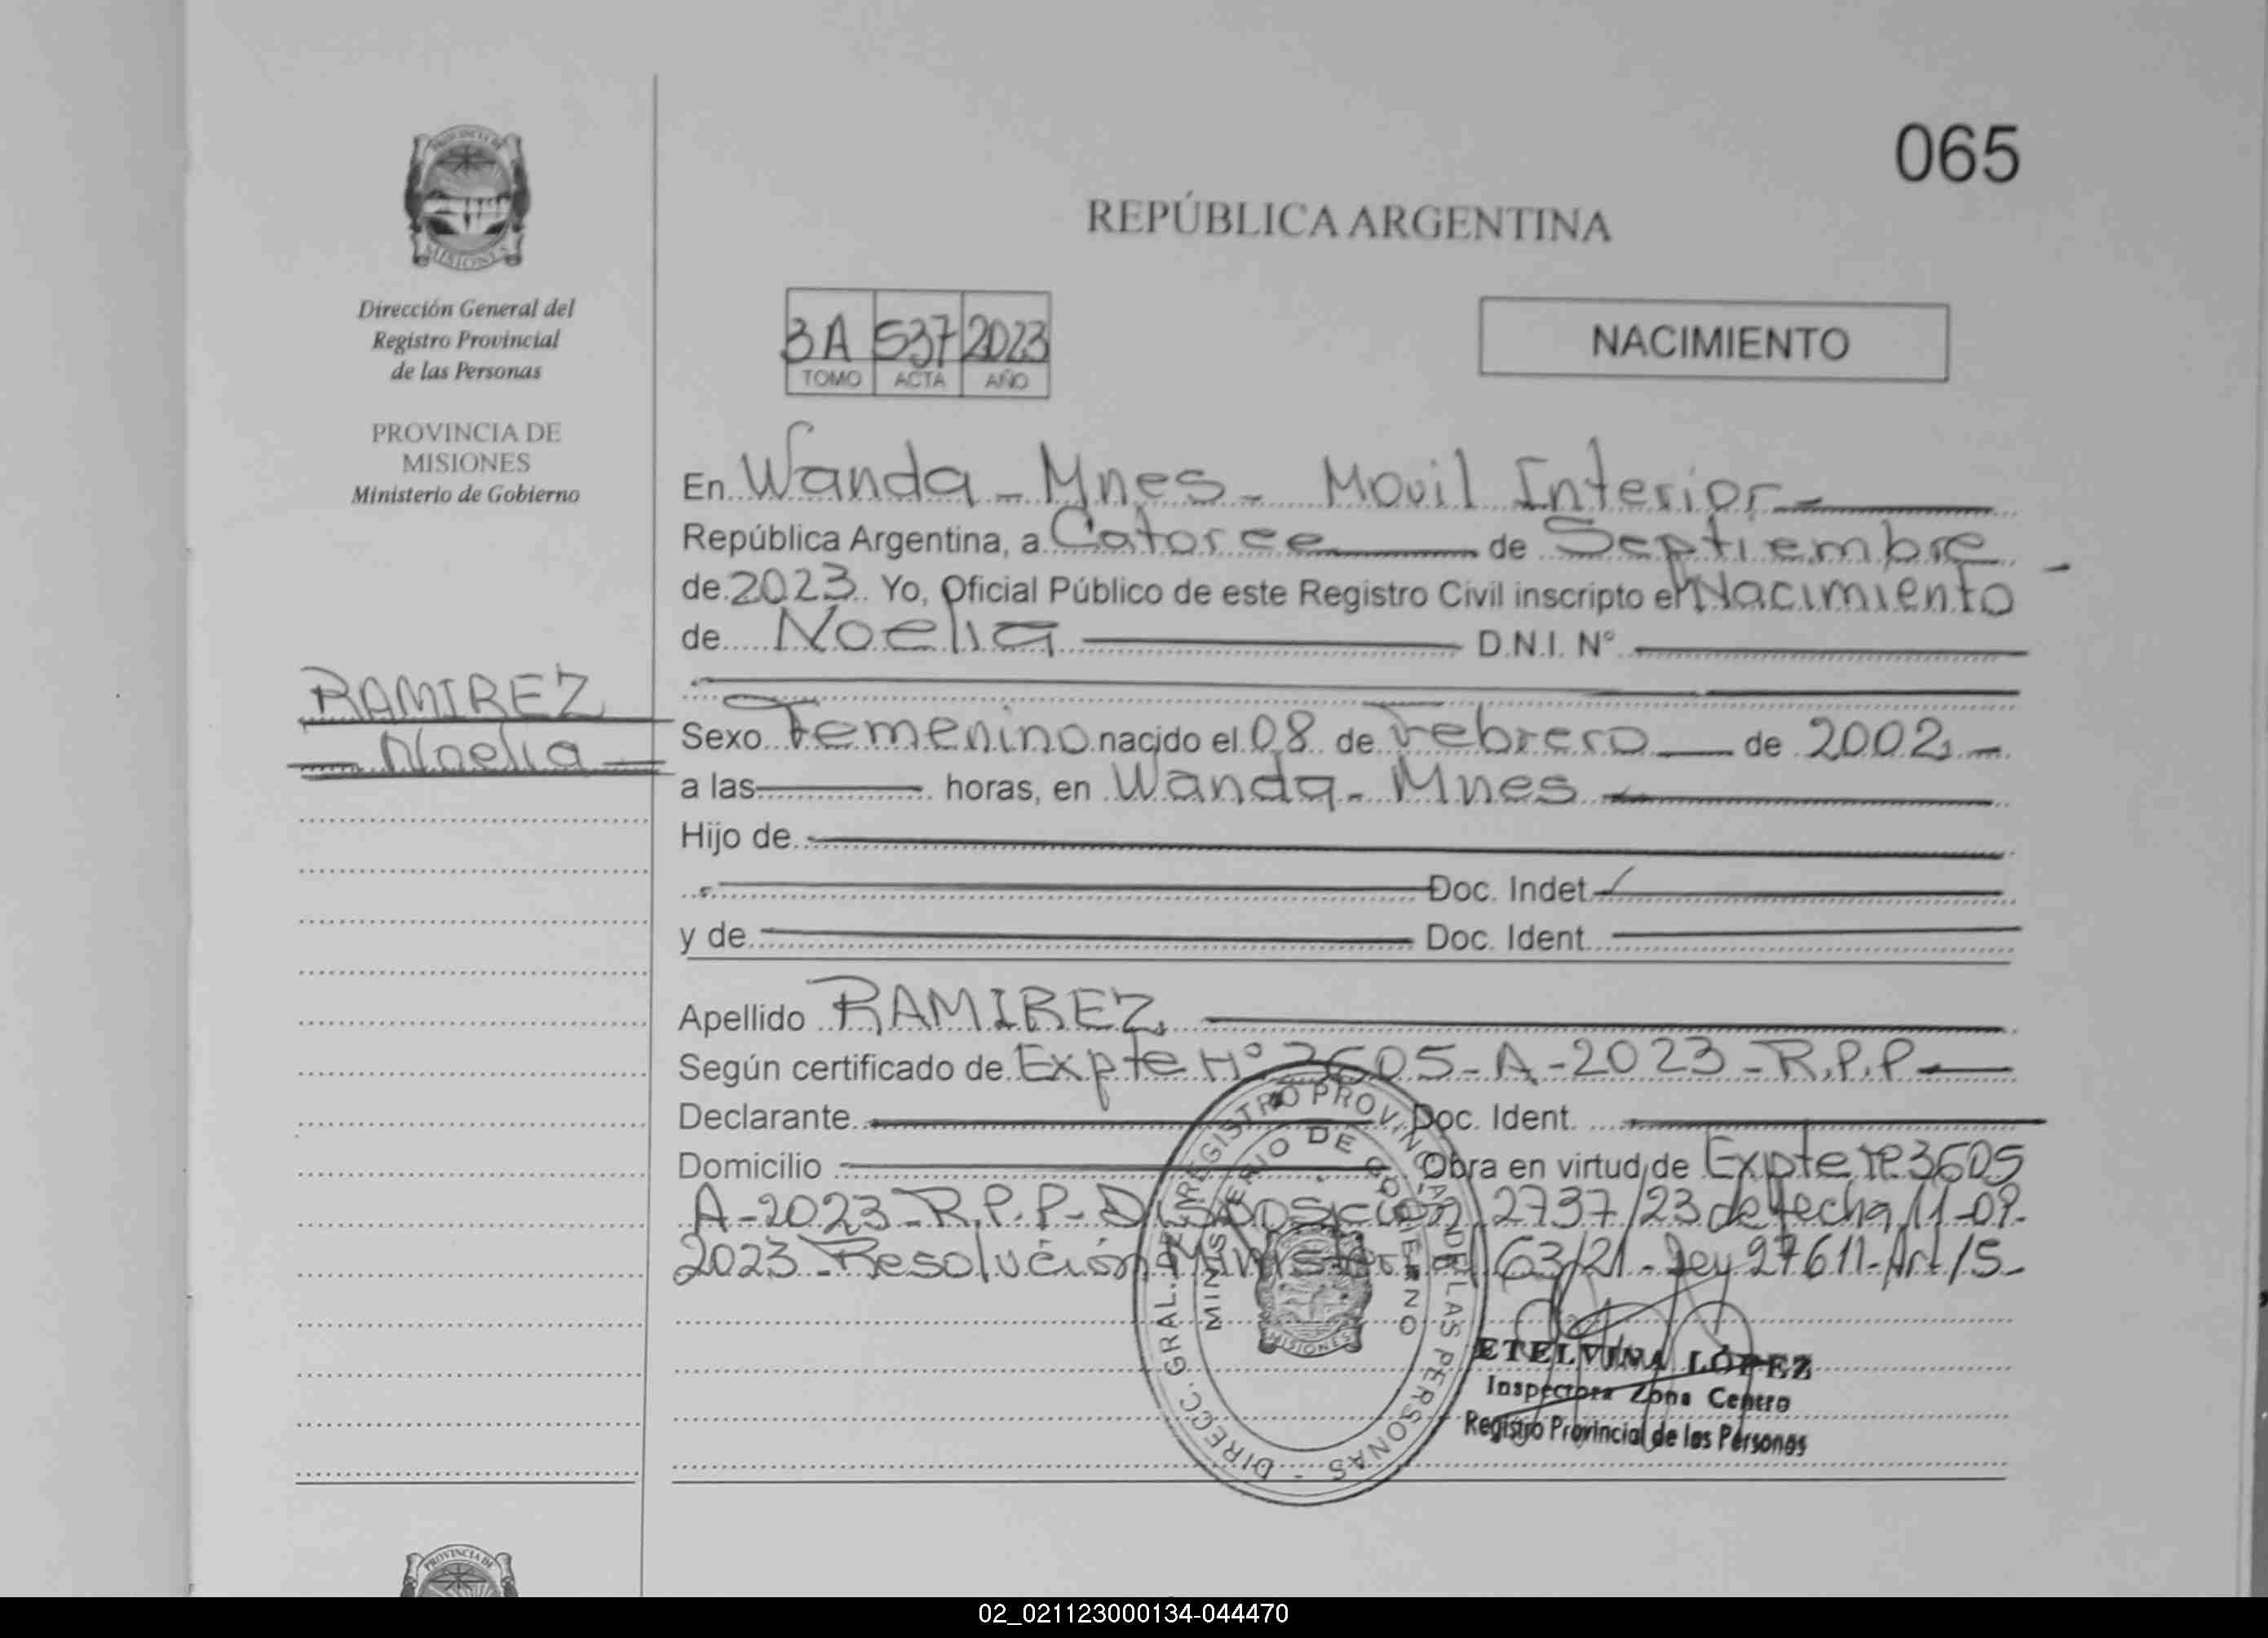 065
REPÚBLICA ARGENTINA
PROVINCIA DE
MISIONES
Dirección General del
Registro Provincial
de las Personas
PROVINCIA DE
MISIONES
Ministerio de Gobierno
3A 537 2023
TOMO ACTA AÑO
NACIMIENTO
En Wanda - Mnes - Movil Interior -
República Argentina, a Catorce de Septiembre -
de 2023. Yo, Oficial Público de este Registro Civil inscripto el Nacimiento
de Noelia D.N.I. Nº
RAMIREZ
Noelia
Sexo Femenino nacido el 08 de Febrero de 2002 -
a las horas, en Wanda - Mnes
Hijo de
Doc. Indet.
y de Doc. Ident.
Apellido RAMIREZ
Según certificado de Expte Nº 3605-A-2023-R.P.P.
Declarante Doc. Ident.
Domicilio Obra en virtud de Expte nº 3605
A-2023-R.P.P-Disposición 2737/23 de fecha 11-09-
2023-Resolución Ministerial 63/21-Ley 27611-Art 15-
DIRECC. GRAL. DEL REGISTRO PROVINCIAL DE LAS PERSONAS -
MINISTERIO DE GOBIERNO
MISIONES
ETELVINA LÓPEZ
Inspectora Zona Centro
Registro Provincial de las Personas
PROVINCIA DE
02_021123000134-044470